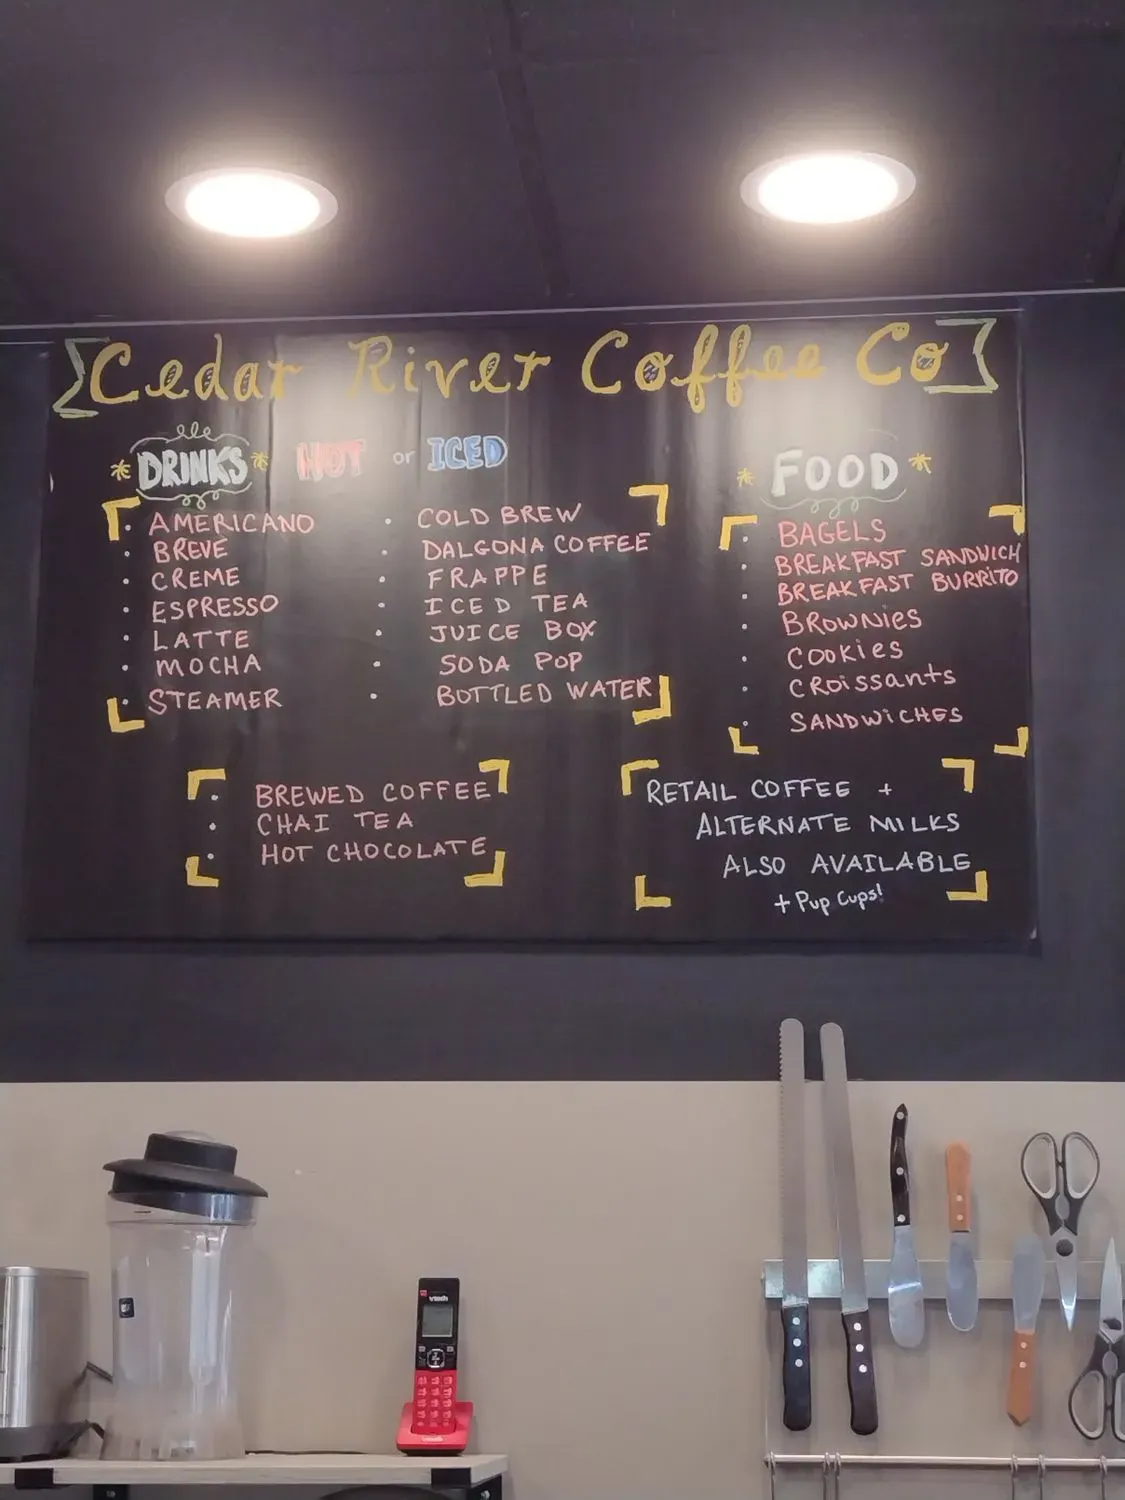 Cedar River Coffee Co
DRINKS HOT or ICED
AMERICANO
BREVE
CREME
ESPRESSO
LATTE
MOCHA
STEAMER
COLD BREW
DALGONA COFFEE
FRAPPE
ICED TEA
JUICE BOX
SODA POP
BOTTLED WATER
BREWED COFFEE
CHAI TEA
HOT CHOCOLATE
FOOD
BAGELS
BREAKFAST SANDWICH
BREAKFAST BURRITO
BROWNiES
COOKiES
CROissants
SANDWiCHES
RETAIL COFFEE +
ALTERNATE MILKS
ALSO AVAILABLE
+ Pup Cups!
vtech